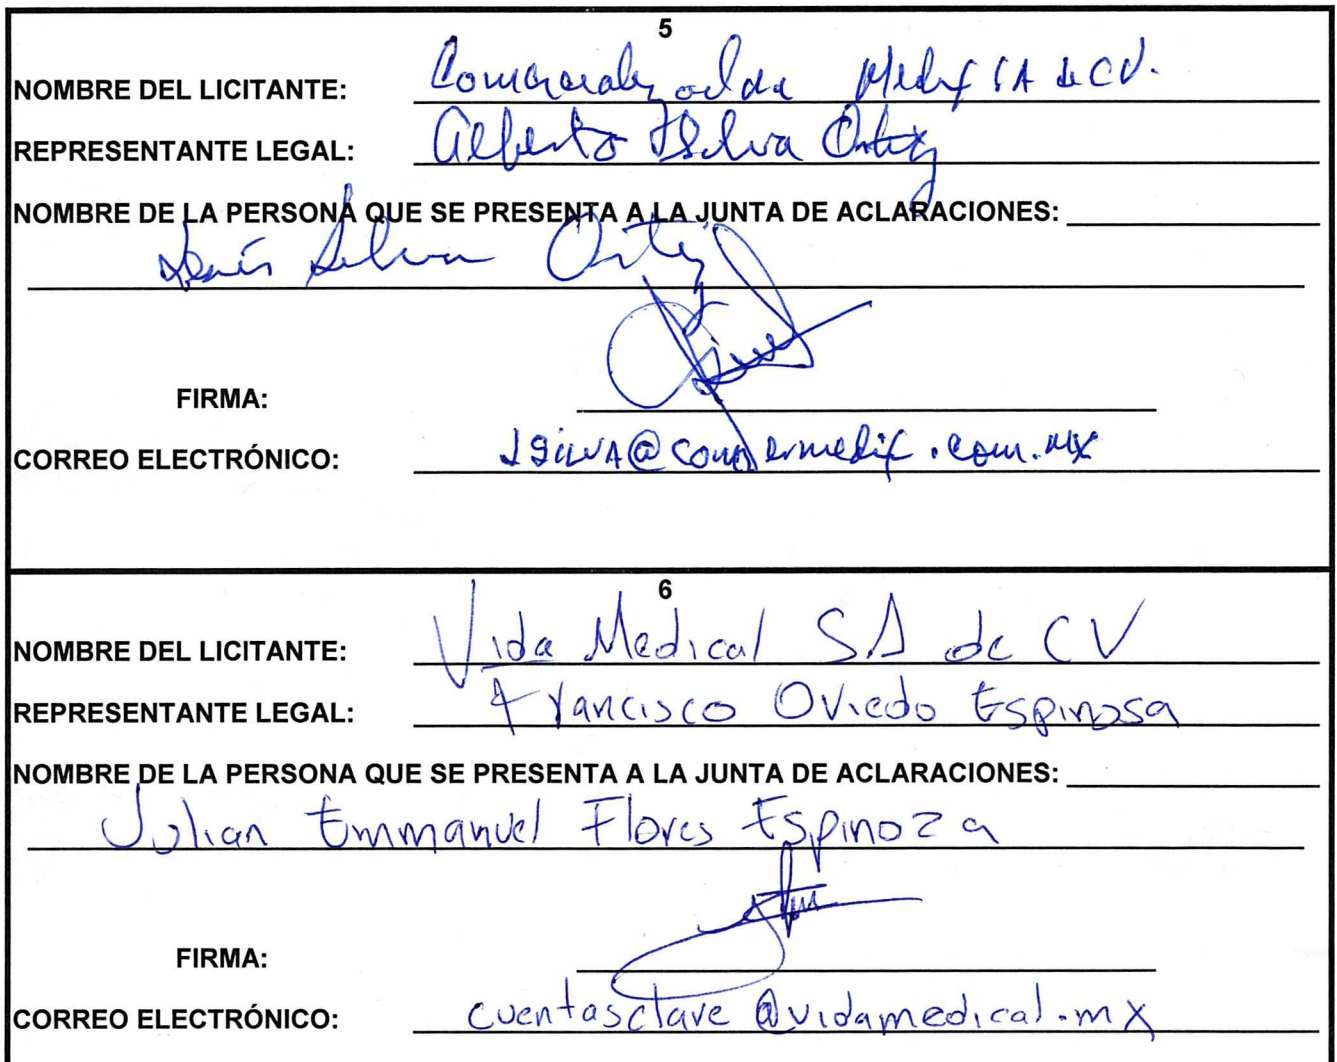 5
NOMBRE DEL LICITANTE: Comercializadora Medif SA de CV.
REPRESENTANTE LEGAL: Alberto Silva Ortiz
NOMBRE DE LA PERSONA QUE SE PRESENTA A LA JUNTA DE ACLARACIONES:
Jesús Silva Ortiz
FIRMA:
CORREO ELECTRÓNICO: JSILVA@comermedif.com.mx
6
NOMBRE DEL LICITANTE: Vida Medical SA de CV
REPRESENTANTE LEGAL: Francisco Oviedo Espinosa
NOMBRE DE LA PERSONA QUE SE PRESENTA A LA JUNTA DE ACLARACIONES:
Julian Emmanuel Flores Espinoza
FIRMA:
CORREO ELECTRÓNICO: cuentasclave@vidamedical.mx